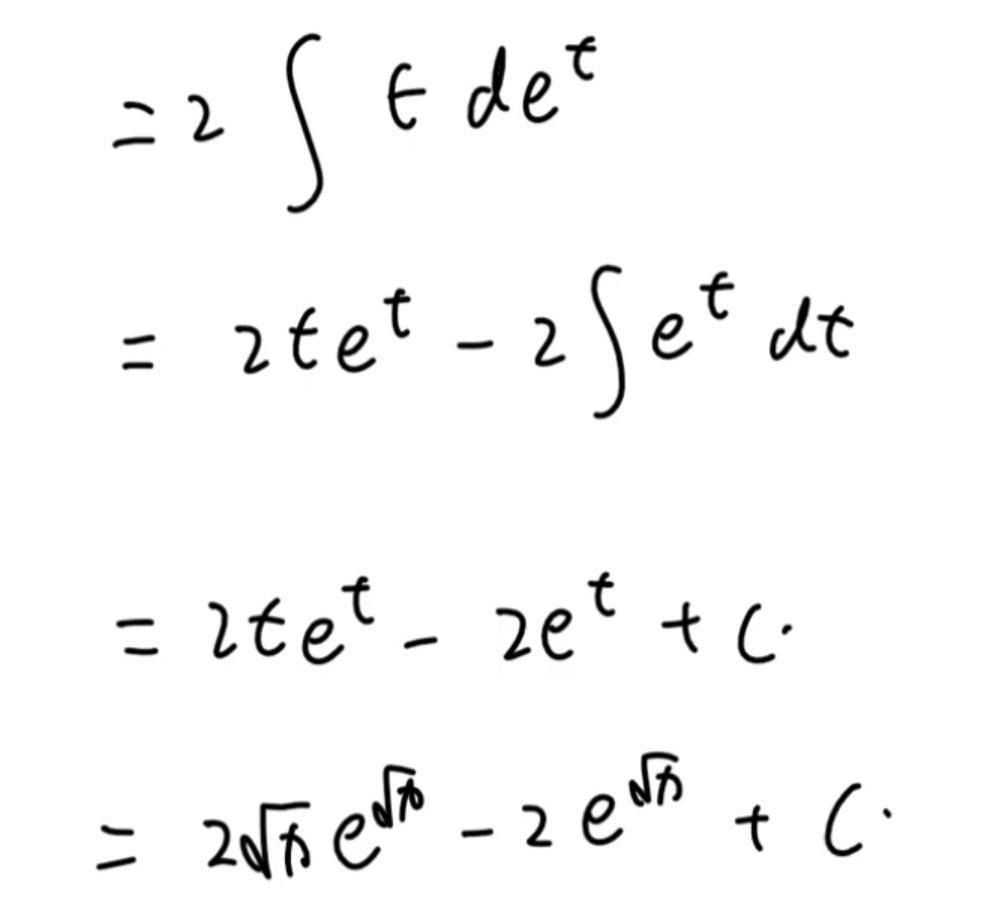 = 2 ∫ t de^t
= 2te^t - 2∫e^t dt
= 2te^t - 2e^t + C.
= 2√x e^√x - 2e^√x + C.